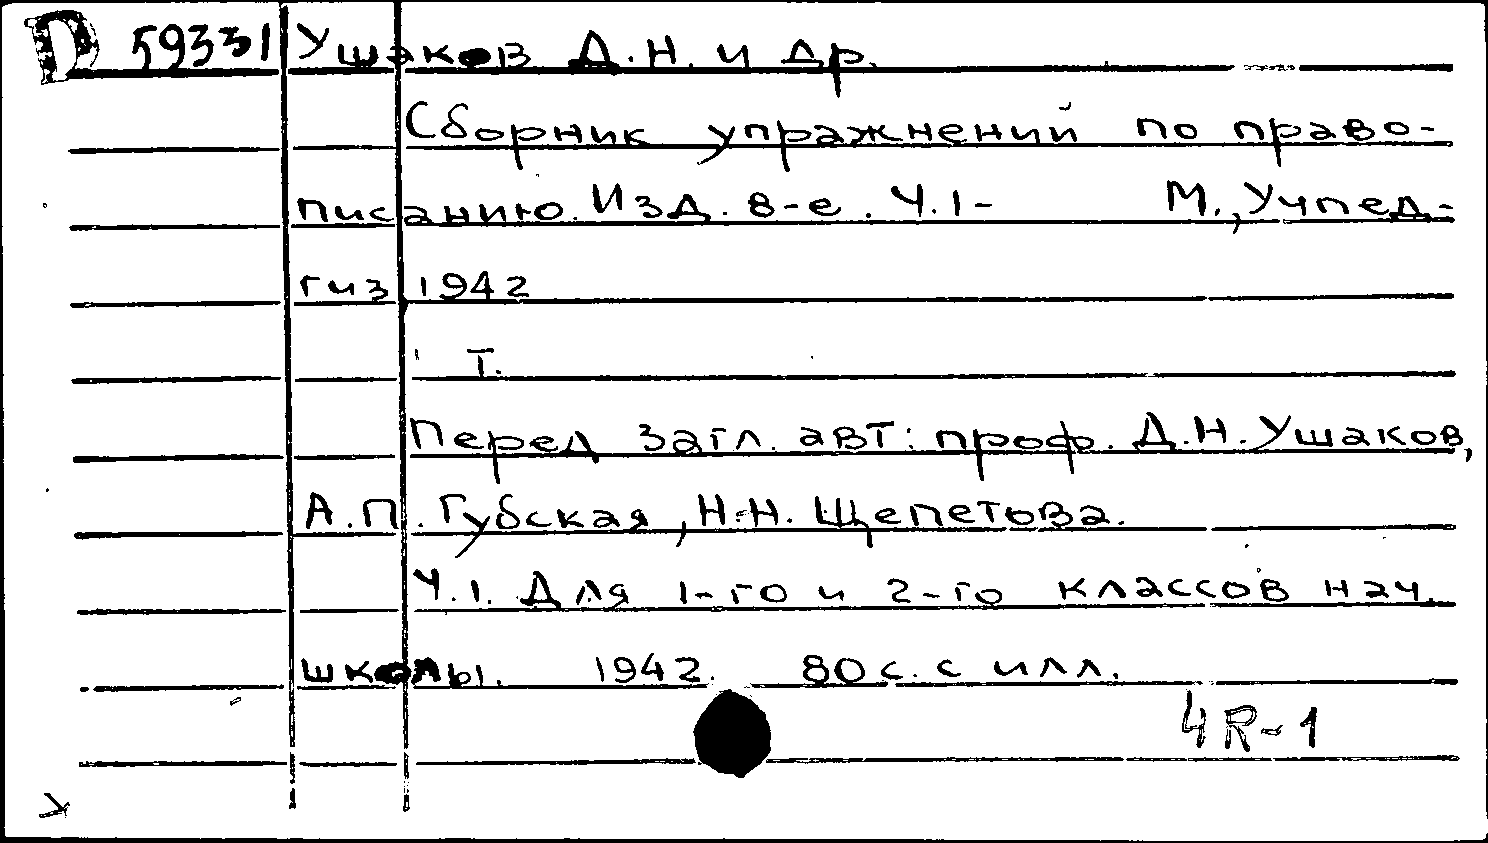 D 59331 Ушаков Д.Н. и др.
Сборник упражнений по право-
писанию. Изд. 8-е. Ч.1- М., Учпед-
гиз, 1942
Т.
Перед загл. авт: проф. Д.Н. Ушаков,
А.П. Губская, Н.Н. Щепетова.
Ч.1. Для 1-го и 2-го классов нач.
школы. 1942. 80 с. с илл.
4R-1